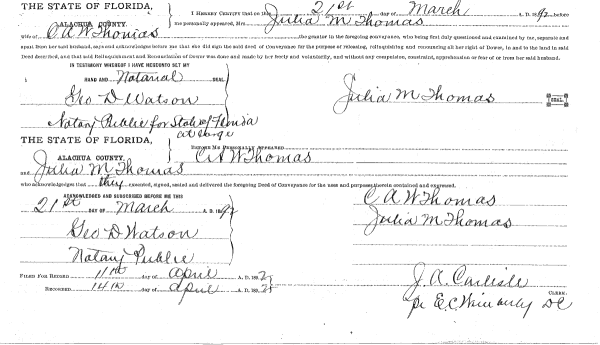 THE STATE OF FLORIDA,
ALACHUA COUNTY.
I HEREBY CERTIFY that on this 21st day of March A. D. 1892 before
me personally appeared, Mrs. Julia M Thomas
wife of C A W Thomas the grantor in the foregoing conveyance, who being first duly questioned and examined by me, separate and
apart from her said husband, says and acknowledges before me that she did sign the said deed of Conveyance for the purpose of releasing, relinquishing and renouncing all her right of Dower, in and to the land in said
Deed described, and that said Relinquishment and Renunciation of Dower was done and made by her freely and voluntarily, and without any compulsion, constraint, apprehension or fear of or from her said husband.
IN TESTIMONY WHEREOF I HAVE HEREUNTO SET MY
HAND AND Notarial SEAL.
Geo D Watson
Notary Public for State of Florida
at large
Julia M Thomas
SEAL.
THE STATE OF FLORIDA,
ALACHUA COUNTY.
BEFORE ME PERSONALLY APPEARED
C A W Thomas
and Julia M Thomas
who acknowledges that they executed, signed, sealed and delivered the foregoing Deed of Conveyance for the uses and purposes therein contained and expressed.
ACKNOWLEDGED AND SUBSCRIBED BEFORE ME THIS
21st DAY OF March A. D. 1892
Geo D Watson
Notary Public
C A W Thomas
Julia M Thomas
FILED FOR RECORD 11th day of April A. D. 189
RECORDED 14th day of April A. D. 189
J. A. Carlisle
CLERK.
pr E. C. Wimberly DC